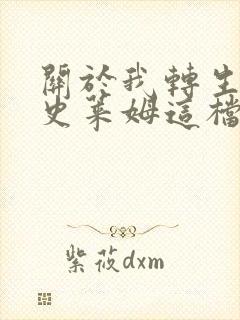 關於我轉生
史萊姆這檔
紫莜dxm